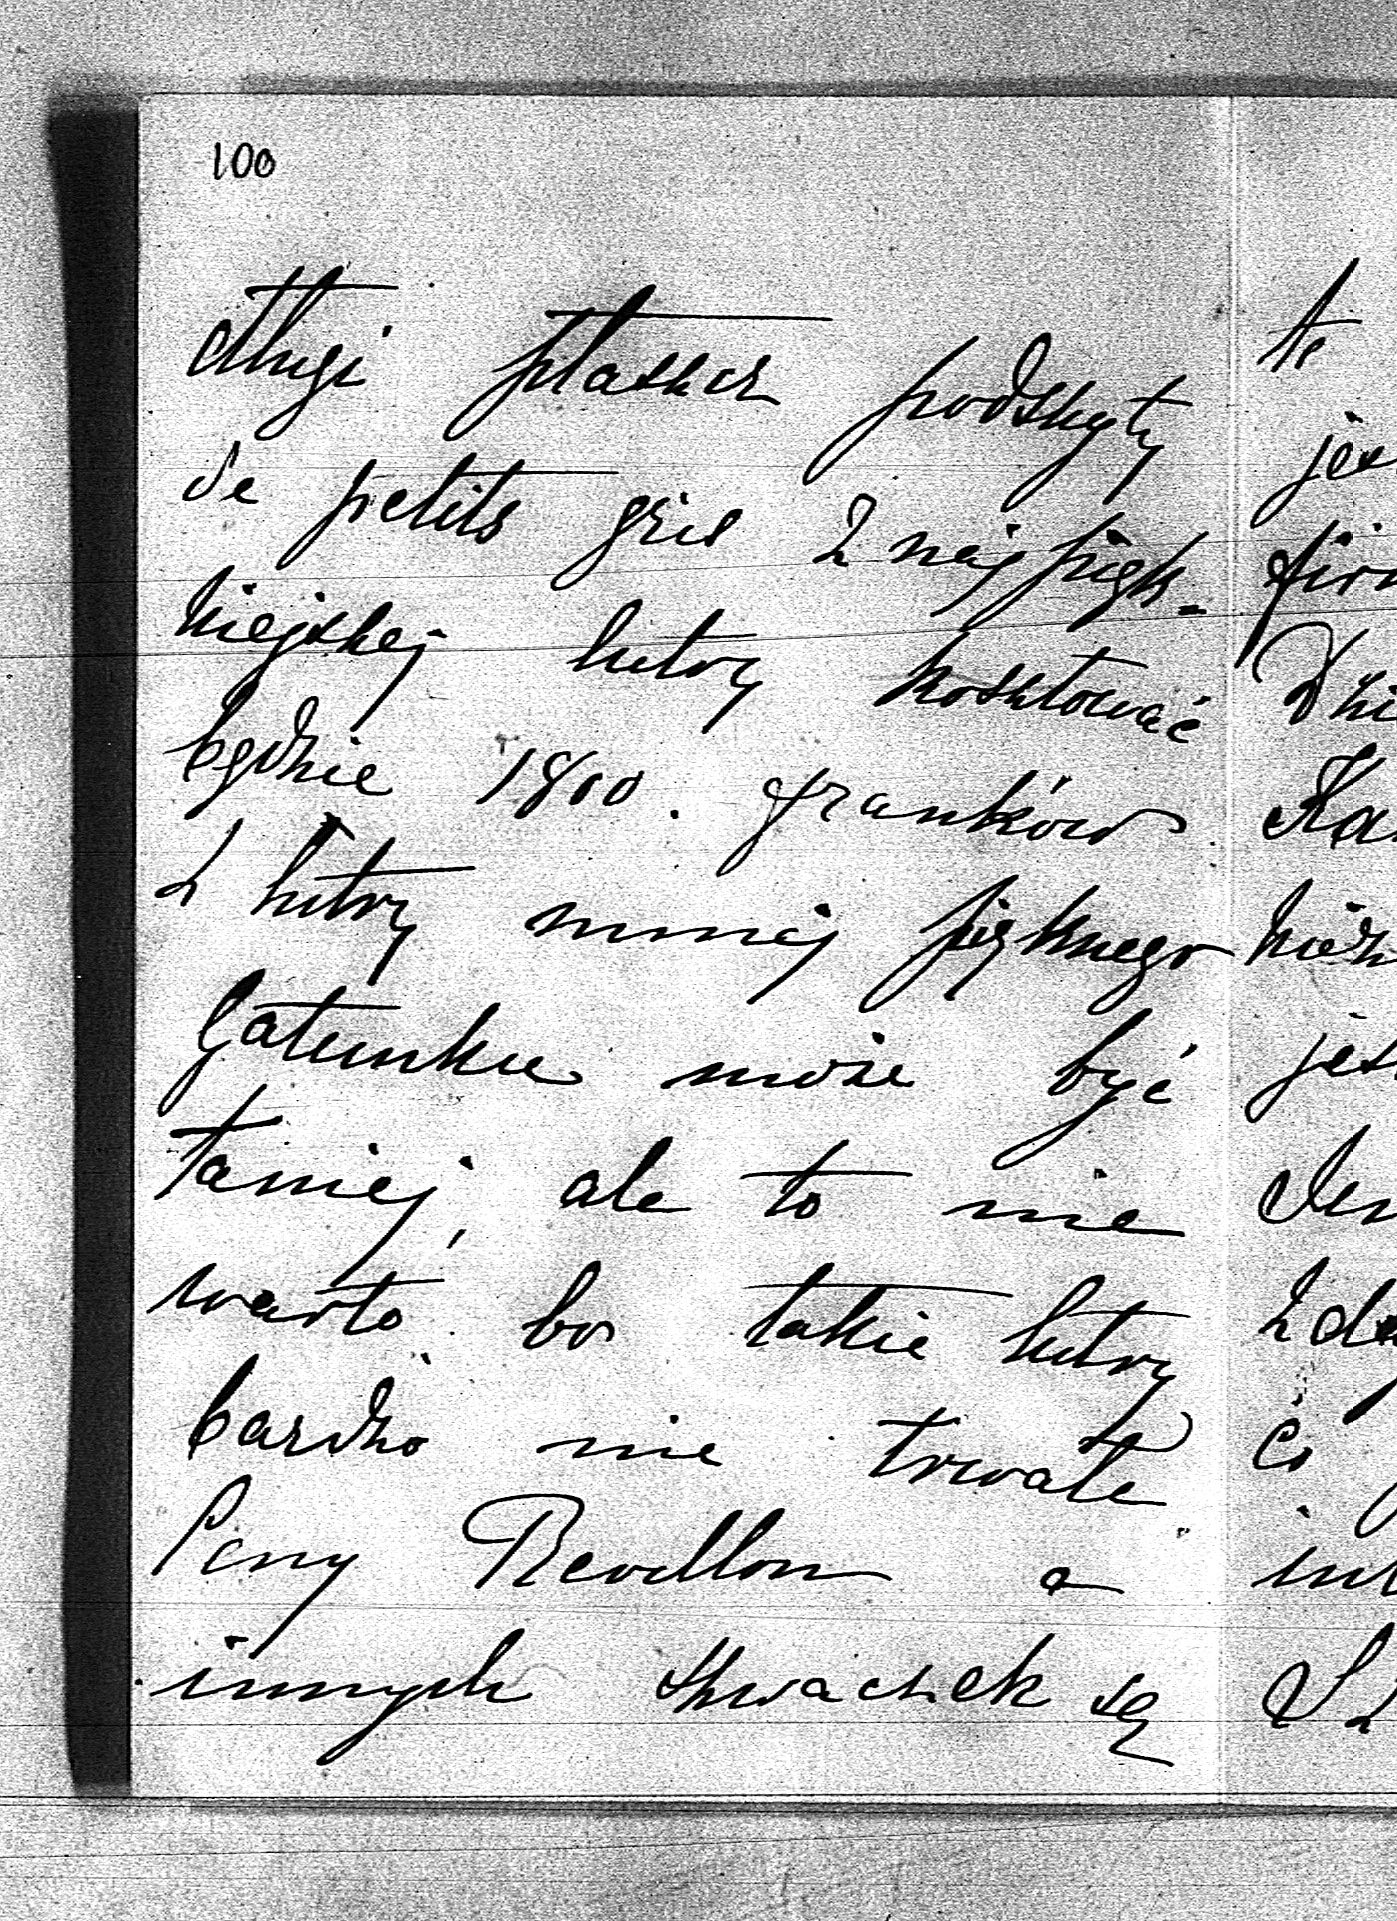 100
długi płaszcz podszyty
de petits gris z najpięk-
niejszej futry kosztować
będzie 1800. franków
z futry mniej pięknego
gatunku może być
taniej, ale to nie
warto bo takie futry
bardzo nie trwałe
Ceny Revillon a
innych szwaczek są
te
Dzi